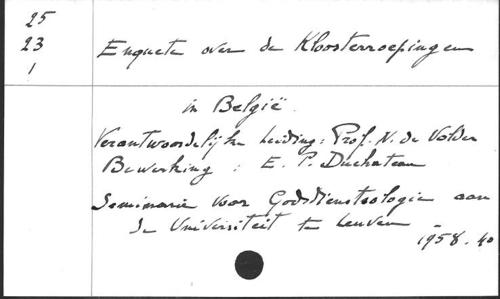 25
23
1
Enquete over de Kloosterroepingen
in België.
Verantwoordelijke leiding: Prof. N. de Volder
Bewerking : E. P. Duchateau
Seminarie voor Godsdienstsologie aan
de Universiteit te Leuven
- 1958. 40